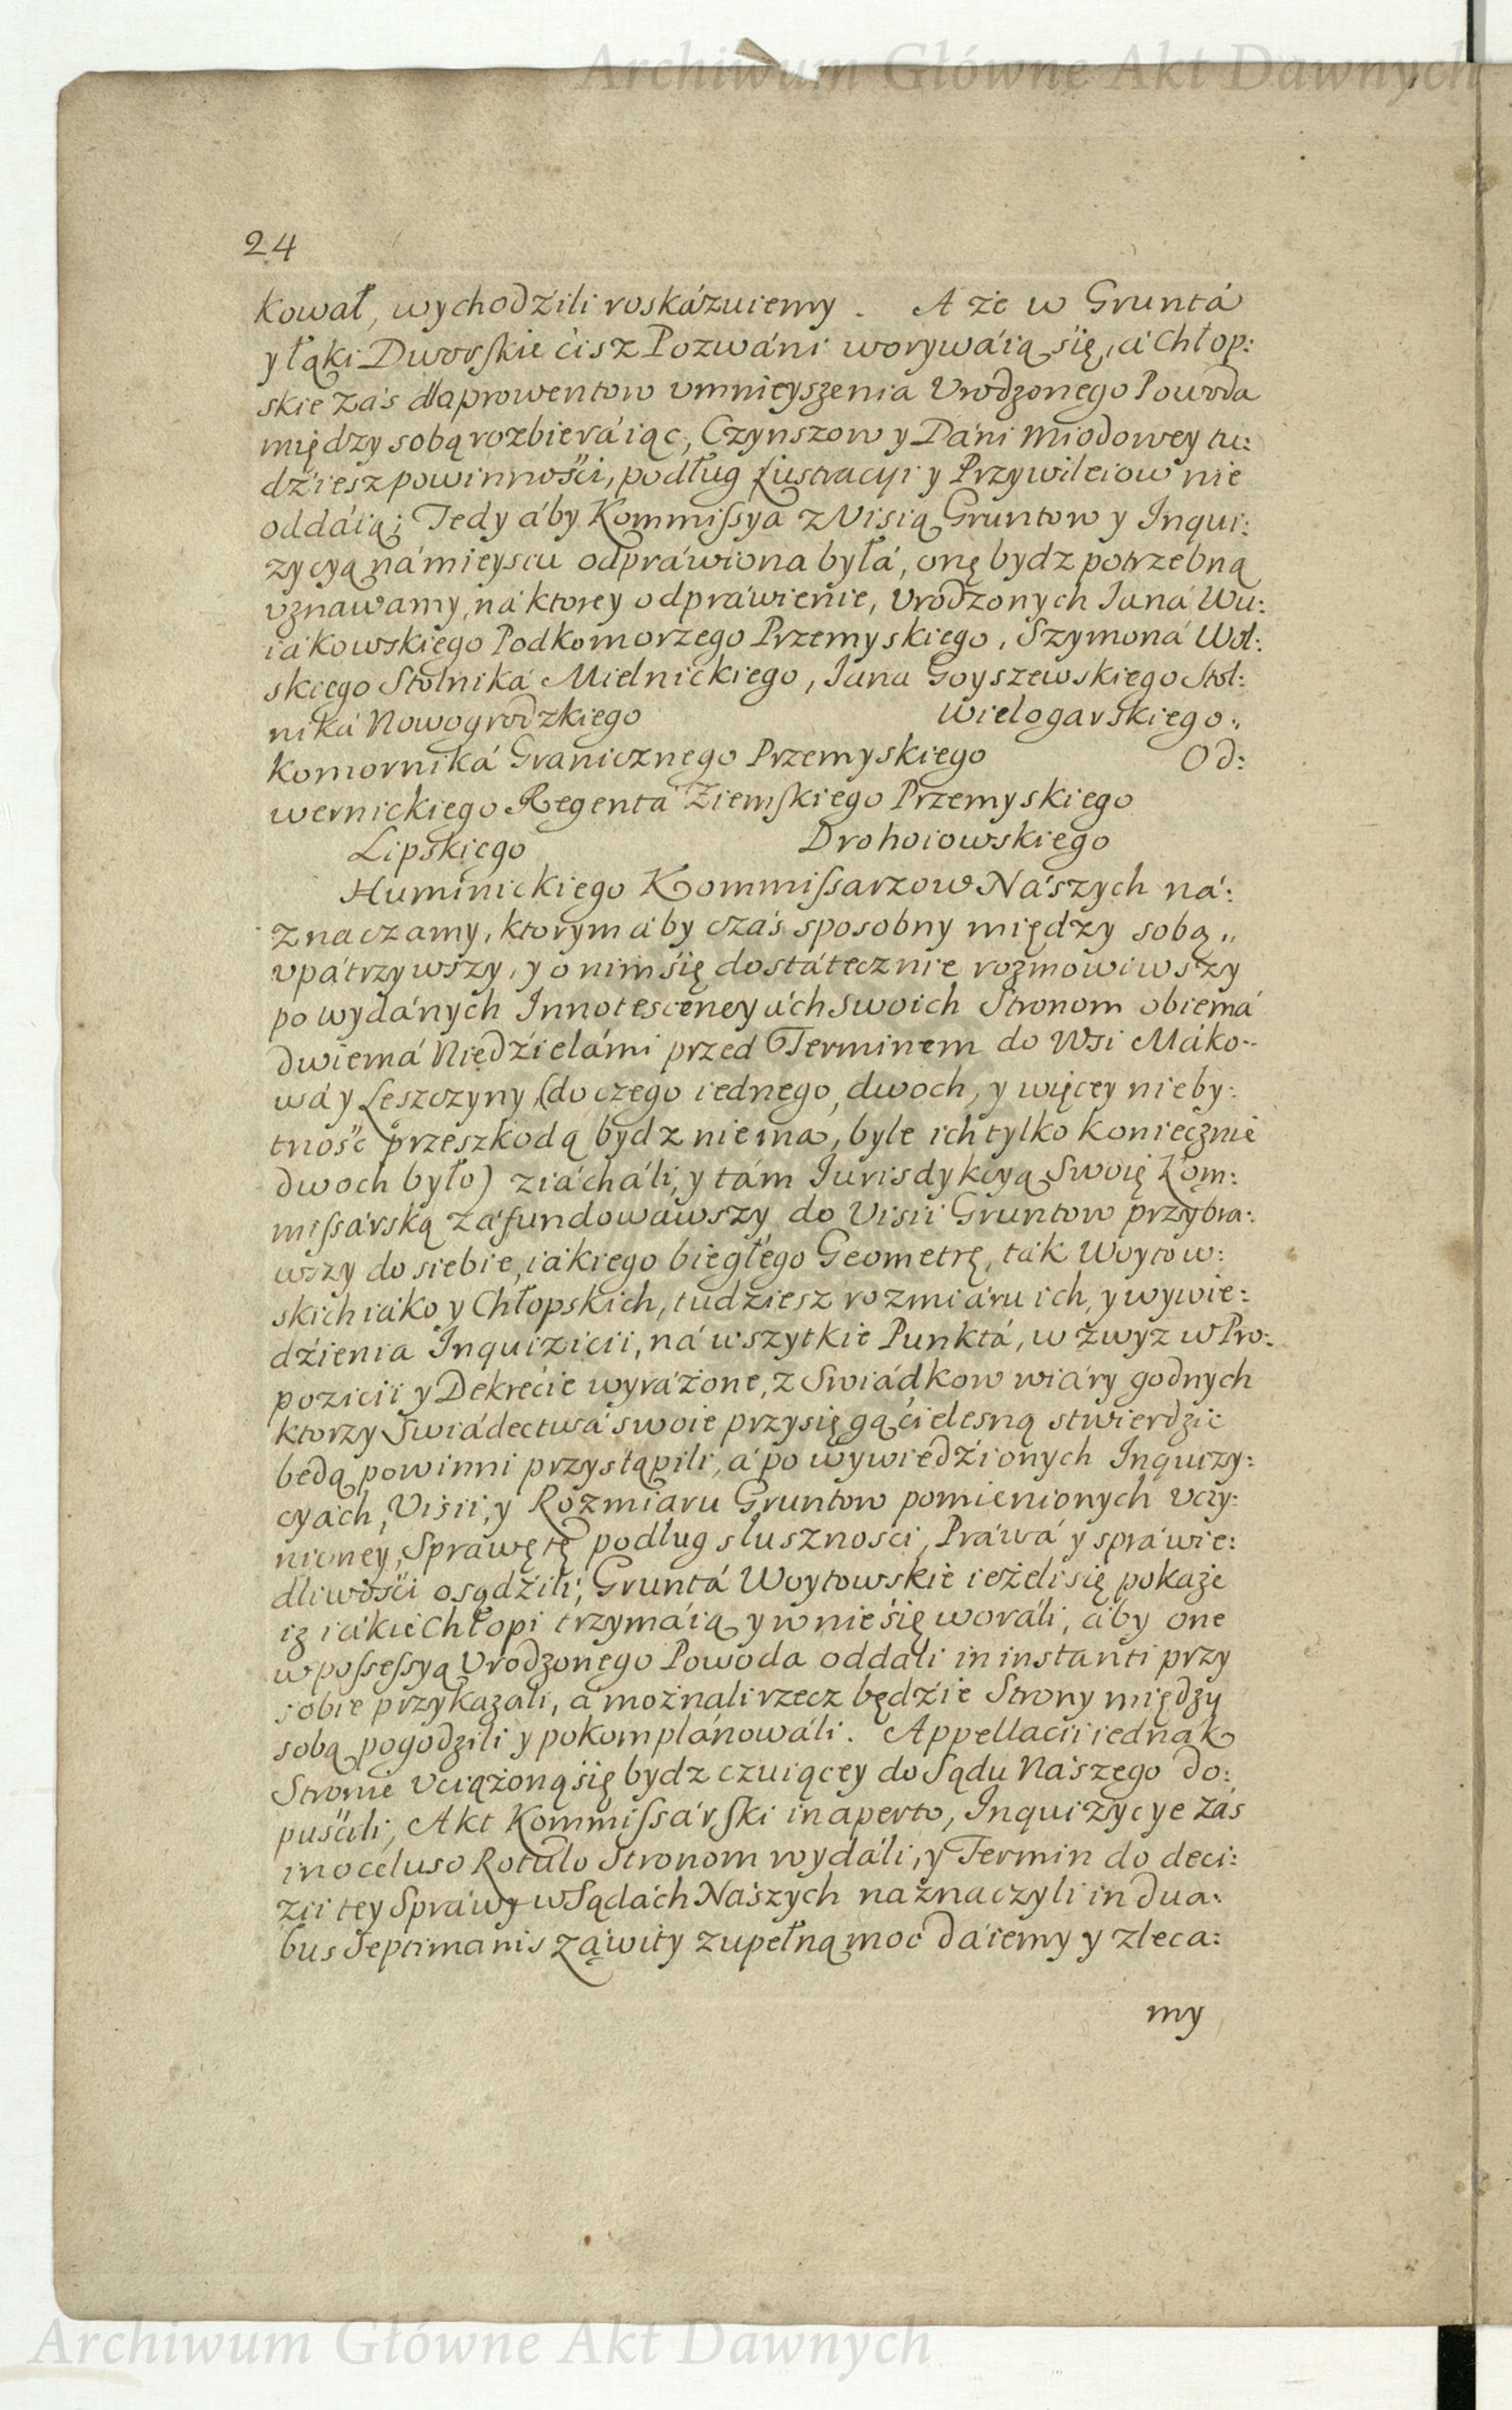 Archiwum Główne Akt Dawnych
24
kował, wychodźili roskázuiemy. A że w Gruntá
y łąki Dworskie ćisz Pozwáni worywáią się, á Chłop:
skie zás dla prowentow vmnieyszenia Vrodzonego Powoda
między sobą rozbieráiąc, Czynszow y Dáni Miodowey tu:
dźiesz powinnośći, podług Lustracyi y Przywileiow nie
oddáią; Tedy áby Kommissya z Visią Gruntow y Inqui:
zycyą ná mieyscu odpráwiona byłá, onę bydz potrzebną
vznawamy, ná ktorey odpráwienie, Vrodzonych Janá Wu:
iákowskiego Podkomorzego Przemyskiego, Szymoná Wol:
skiego Stolniká Mielnickiego, Jana Goyszewskiego Stol:
niká Nowogrodzkiego Wielogarskiego,,
Komorniká Granicznego Przemyskiego Od:
wernickiego Regentá Ziemskiego Przemyskiego
Lipskiego Drohoiowskiego
Huminickiego Kommissarzow Nászych ná:
znaczamy, ktorym áby czás sposobny między sobą,,
vpátrzywszy, y o nim się dostátecznie rozmowiwszy
po wydánych Innotescencyách swoich Stronom obiemá
dwiemá Niedźielámi przed Terminem do Wsi Máko-
wá y Leszczyny (do czego iednego, dwoch, y więcey nieby:
tność przeszkodą bydz nie ma, byle ich tylko koniecznie
dwoch było) ziácháli, y tám Jurisdykcyą Swoię Kom:
missárską záfundowawszy do Visii Gruntow przybra:
wszy do siebie, iákiego biegłego Geometrę, ták Woytow:
skich iáko y Chłopskich, tudziesz rozmiáru ich, y wywie:
dźienia Inquizicii, ná wszytkie Punktá, w zwyz w Pro:
pozicii y Dekrećie wyráżone, z Swiádkow wiáry godnych
ktorzy Swiádectwá swoie przysięgą ćielesną stwierdzić
bedą powinni przystąpili, á po wywiedźionych Inquizy:
cyách, Visii, y Rozmiaru Gruntow pomienionych vczy:
nioney, Sprawę tę podług słusznosci, Práwá y spráwie:
dliwośći osądźili; Gruntá Woytowskie ieżeli się pokaże
iz iákie Chłopi trzymáią y w nie się woráli, áby one
w possessyą Vrodzonego Powoda oddali in instanti przy
sobie przykazali, á możnali rzecz będźie Strony między
sobą pogodzili y pokomplánowáli. Appellacii iednák
Stronie vciążoną się bydz czuiącey do Sądu Nászego do:
puśćili, Akt Kommissárski in aperto, Inquizycye zás
in occluso Rotulo Stronom wydáli, y Termin do deci:
zii tey Spráwy w Sądách Nászych náznaczyli in dua:
bus Septimanis záwity zupełną moc dáiemy y zleca:
my
Archiwum Główne Akt Dawnych